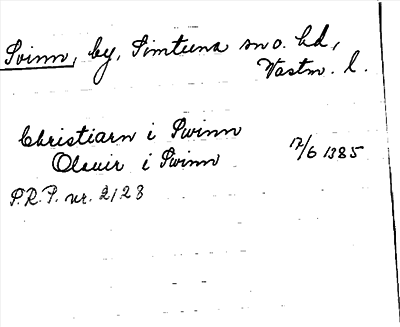 Svinn, by, Simtuna sn o. hd,
Vastm. l.
Christiarn i Swinn
Olauir i Swinn 17/6 1385
S.R.P. nr. 2123